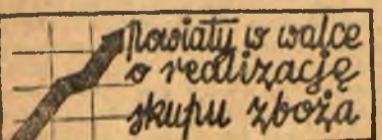 Powiaty w walce
o realizację
skupu zboża